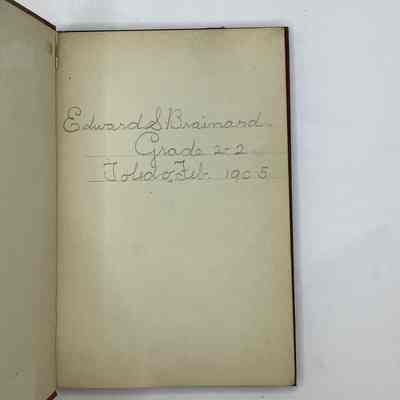 Edward S Brainard.
Grade 2-2
Toledo, Feb. 1905